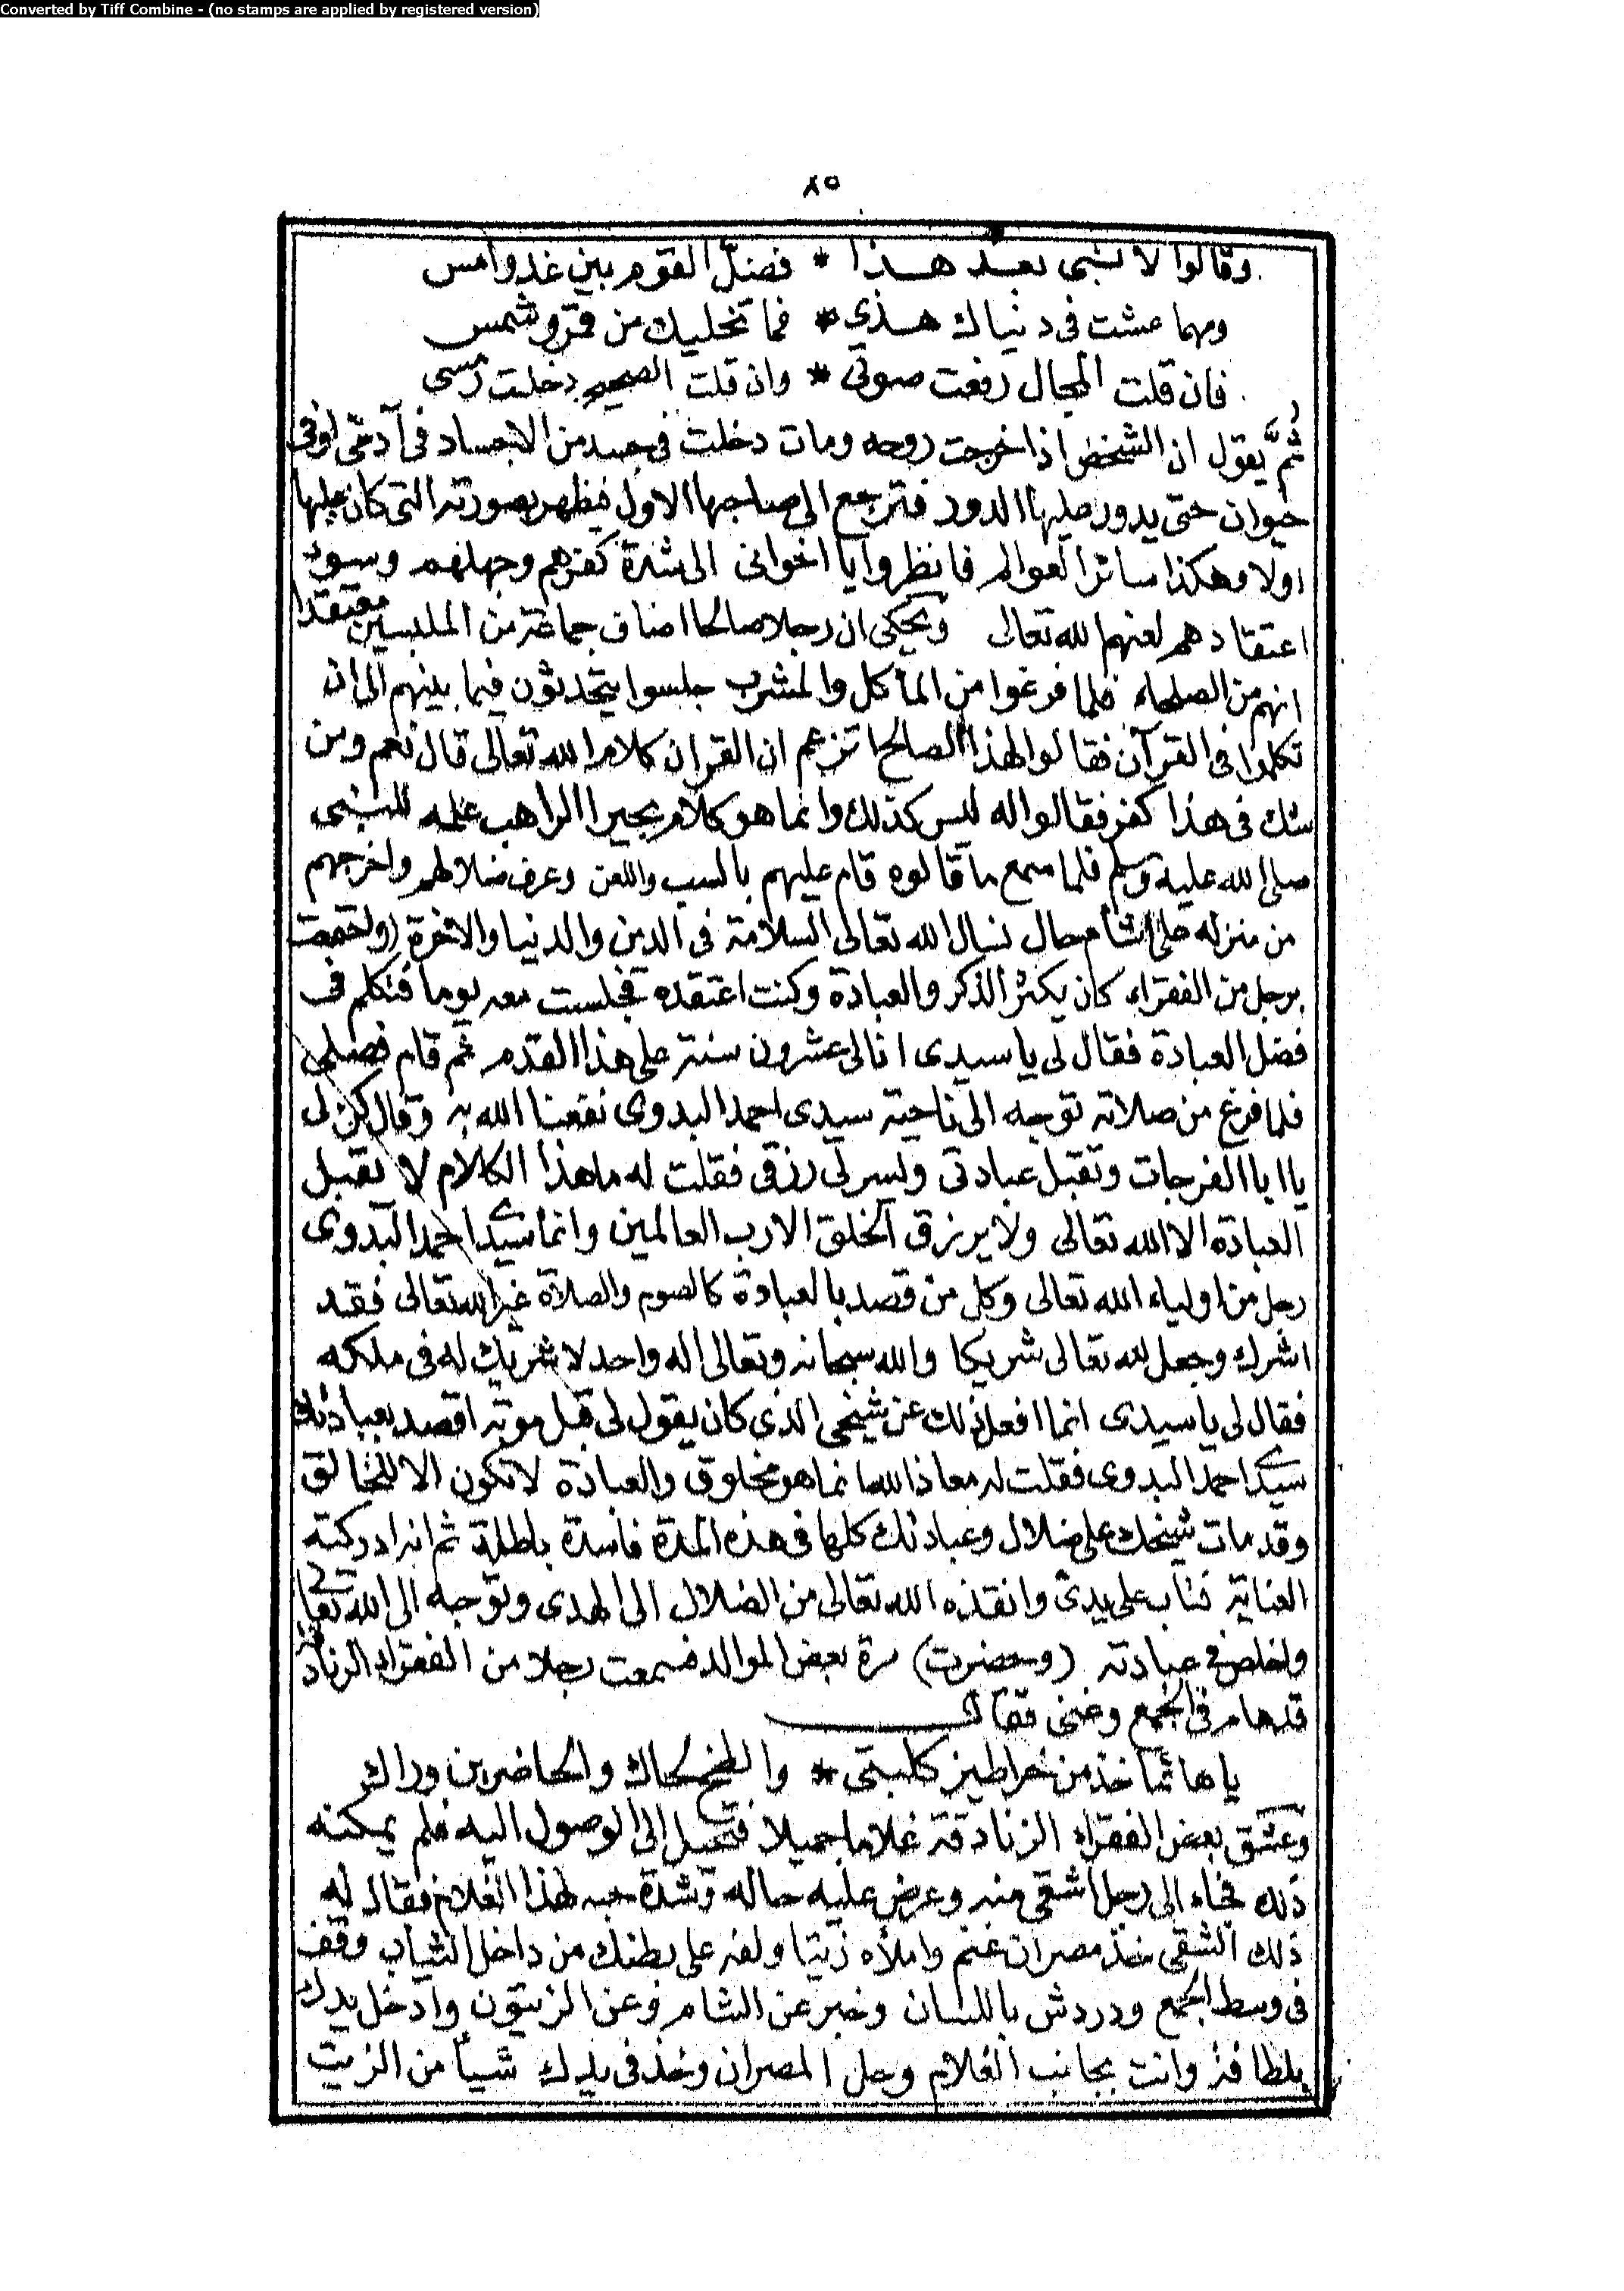 Converted by Tiff Combine - (no stamps are applied by registered version)
٨٥
وقالوا لا نبى بعد هذا * فضل القوم بين غد وامس
ومهما عشت فى دنياك هذى * فما تخليك من قمر وشمس
فان قلت المحال رفعت صوتى * وان قلت الصحيح دخلت رمسى
ثم يقول ان الشخص اذا خرجت روحه ومات دخلت فى جسد من الاجساد فى آدمى اوفى
حيوان حتى يدور عليها الدور فترجع الى صاحبها الاول فيظهر بصورته التى كان عليها
اولا وهكذا سائر العوالم فانظروا يا اخوانى الى شدة كفرهم وجهلهم وسوء
اعتقادهم لعنهم الله تعالى ويحكى ان رجلا صالحا اضاف جماعة من الملبسين معتقدا
انهم من الصلحاء فلما فرغوا من المأكل والمشرب جلسوا يتحدثون فيما بينهم الى ان
تكلموا فى القرآن فقالوا لهذا الصالح اتزعم ان القرآن كلام الله تعالى قال نعم ومن
شك فى هذا كفر فقالوا له ليس كذلك وانما هو كلام بحيرا الراهب علمه للنبى
صلى الله عليه وسلم فلما سمع ما قالوه قام عليهم بالسب واللعن وعرف ضلالهم واخرجهم
من منزله على اشأم حال نسال الله تعالى السلامة فى الدين والدنيا والاخرة (واجتمعت
برجل من الفقراء كان يكثر الذكر والعبادة وكنت اعتقده فجلست معه يوما فتكلم فى
فضل العبادة فقال لى يا سيدى انا لى عشرون سنة على هذا القدم ثم قام فصلى
فلما فرغ من صلاته توجه الى ناحية سيدى احمد البدوى نفعنا الله به وقال كن لى
يا ابا الفرجات وتقبل عبادتى ويسر لى رزقى فقلت له ما هذا الكلام لا يقبل
العبادة الا الله تعالى ولا يرزق الخلق الا رب العالمين وانما سيدى احمد البدوى
رجل من اولياء الله تعالى وكل من قصد بالعبادة كالصوم والصلاة غير الله تعالى فقد
اشرك وجعل لله تعالى شريكا والله سبحانه وتعالى اله واحد لا شريك له فى ملكه
فقال لى يا سيدى انما افعل ذلك عن شيخى الذى كان يقول لى قبل موته اقصد بعبادتك
سيدى احمد البدوى فقلت له معاذ الله انما هو مخلوق والعبادة لا تكون الا للخالق
وقد مات شيخك على ضلال وعبادتك كلها فى هذه المدة فاسدة باطلة ثم انه ادركته
العناية فتاب على يدى وانقذه الله تعالى من الضلال الى الهدى وتوجه الى الله تعالى
واخلص فى عبادته (وحضرت) مرة بعض الموالد فسمعت رجلا من الفقراء الزنادقة
قد هام فى الجمع وغنى فقال
يا هائما خذ من خراطيز كلبتى * والطخ لحاك والحاضرين وراك
وعشق بعض الفقراء الزنادقة غلاما جميلا فتحيل الى الوصول اليه فلم يمكنه
ذلك فجاء الى رجل اشقى منه وعرض عليه حاله وشدة حبه لهذا الغلام فقال له
ذلك الشقى خذ مصران غنم واملأه زيتا ولفه على بطنك من داخل الثياب وقف
فى وسط الجمع ودردش باللسان وخبر عن الشام وعن الزيتون وادخل يدك
بلطافة وانت بجانب الغلام وحل المصران وخذ فى يدك شيأ من الزيت